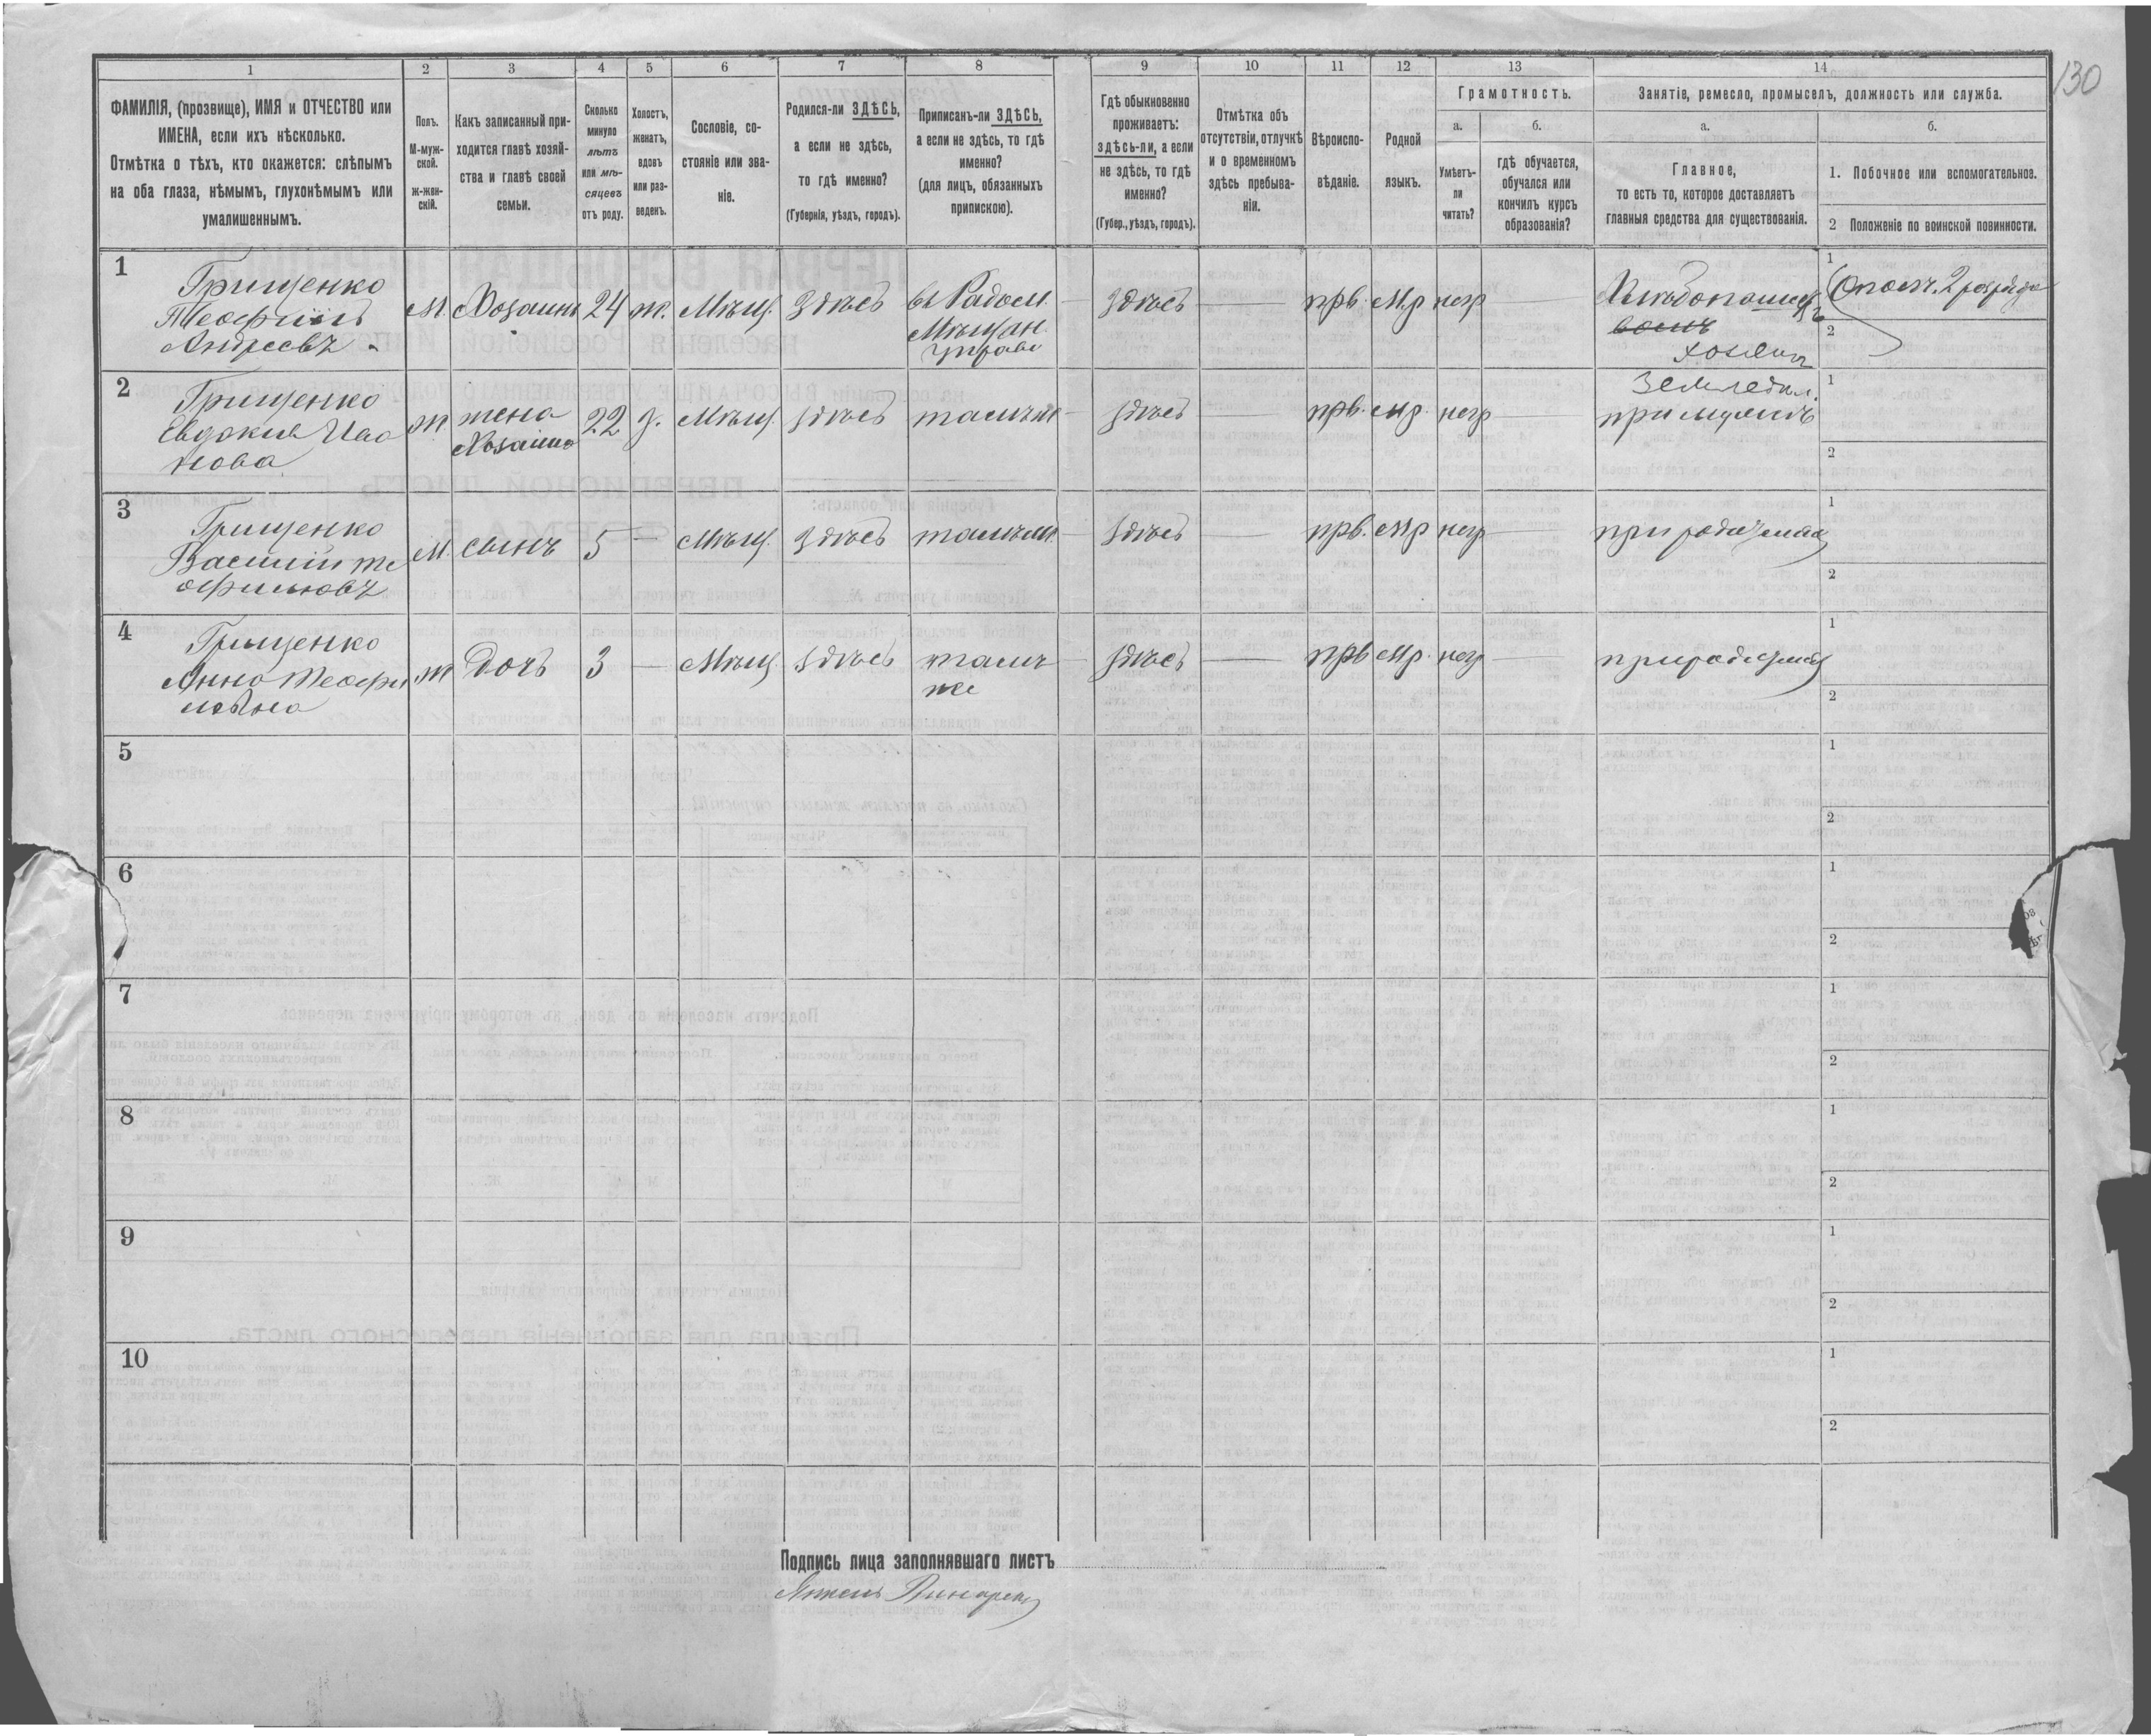 130
1 2 3 4 5 6 7 8 9 10 11 12 13 14
ФАМИЛІЯ, (прозвище), ИМЯ и ОТЧЕСТВО или
ИМЕНА, если ихъ нѣсколько.
Отмѣтка о тѣхъ, кто окажется: слѣпымъ
на оба глаза, нѣмымъ, глухонѣмымъ или
умалишеннымъ.
Полъ.
М-муж-
ской.
ж-жен-
скій.
Какъ записанный при-
ходится главѣ хозяй-
ства и главѣ своей
семьи.
Сколько
минуло
лѣтъ
или мѣ-
сяцевъ
отъ роду.
Холостъ,
женатъ,
вдовъ
или раз-
веденъ.
Сословіе, со-
стояніе или зва-
ніе.
Родился-ли ЗДѢСЬ,
а если не здѣсь,
то гдѣ именно?
(Губернія, уѣздъ, городъ).
Приписанъ-ли ЗДѢСЬ,
а если не здѣсь, то гдѣ
именно?
(для лицъ, обязанныхъ
припискою).
Гдѣ обыкновенно
проживаетъ:
здѣсь-ли, а если
не здѣсь, то гдѣ
именно?
(Губер., уѣздъ, городъ).
Отмѣтка объ
отсутствіи, отлучкѣ
и о временномъ
здѣсь пребыва-
ніи.
Вѣроиспо-
вѣданіе.
Родной
языкъ.
Грамотность.
а.
Умѣетъ-
ли
читать?
б.
гдѣ обучается,
обучался или
кончилъ курсъ
образованія?
Занятіе, ремесло, промыселъ, должность или служба.
а.
Главное,
то есть то, которое доставляетъ
главныя средства для существованія.
б.
1. Побочное или вспомогательное.
2 Положеніе по воинской повинности.
1
Грищенко
Теофилъ
Андреевъ
М. Хозяинъ 24 ж. Мѣщ. Здѣсь
въ Радом.
Мѣщан
управѣ
здѣсь прв. м.р негр
Хлѣбопашец
хозяин
1 Ополч. 2 разряда
2
2
Грищенко
Евдокия Ива
нова
ж
жена
Хозяина
22 з. Мѣщ. здѣсь тамъже здѣсь прв. мр. негр
Земледѣл.
при мужѣ
1
2
3
Грищенко
Василій Те
офиловъ
М. сынъ 5 Мѣщ. здѣсь тамъже здѣсь прв. мр негр
1
2
4
Грищенко
Анна Теофи
лова
ж Дочь 3 Мѣщ здѣсь
тамъ
же
здѣсь прв мр. негр
1
2
5
1
2
6
1
2
7
1
2
8
1
2
9
1
2
10
1
2
Подпись лица заполнявшаго листъ